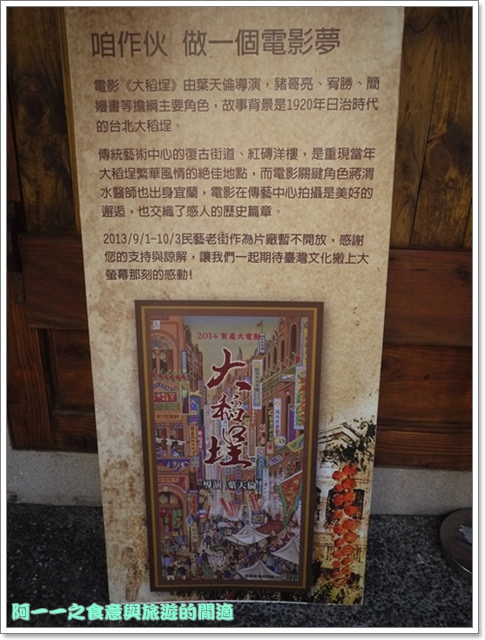 咱作伙 做一個電影夢
電影《大稻埕》由葉天倫導演，豬哥亮、宥勝、簡
嫚書等擔綱主要角色，故事背景是1920年日治時代
的台北大稻埕。
傳統藝術中心的復古街道、紅磚洋樓，是重現當年
大稻埕繁華風情的絕佳地點，而電影關鍵角色蔣渭
水醫師也出身宜蘭，電影在傳藝中心拍攝是美好的
邂逅，也交織了感人的歷史篇章。
2013/9/1-10/3民藝老街作為片廠暫不開放，感謝
您的支持與諒解，讓我們一起期待臺灣文化搬上大
螢幕那刻的感動!
2014賀歲大電影
大稻埕
導演 葉天倫
阿一一之食意與旅遊的間適